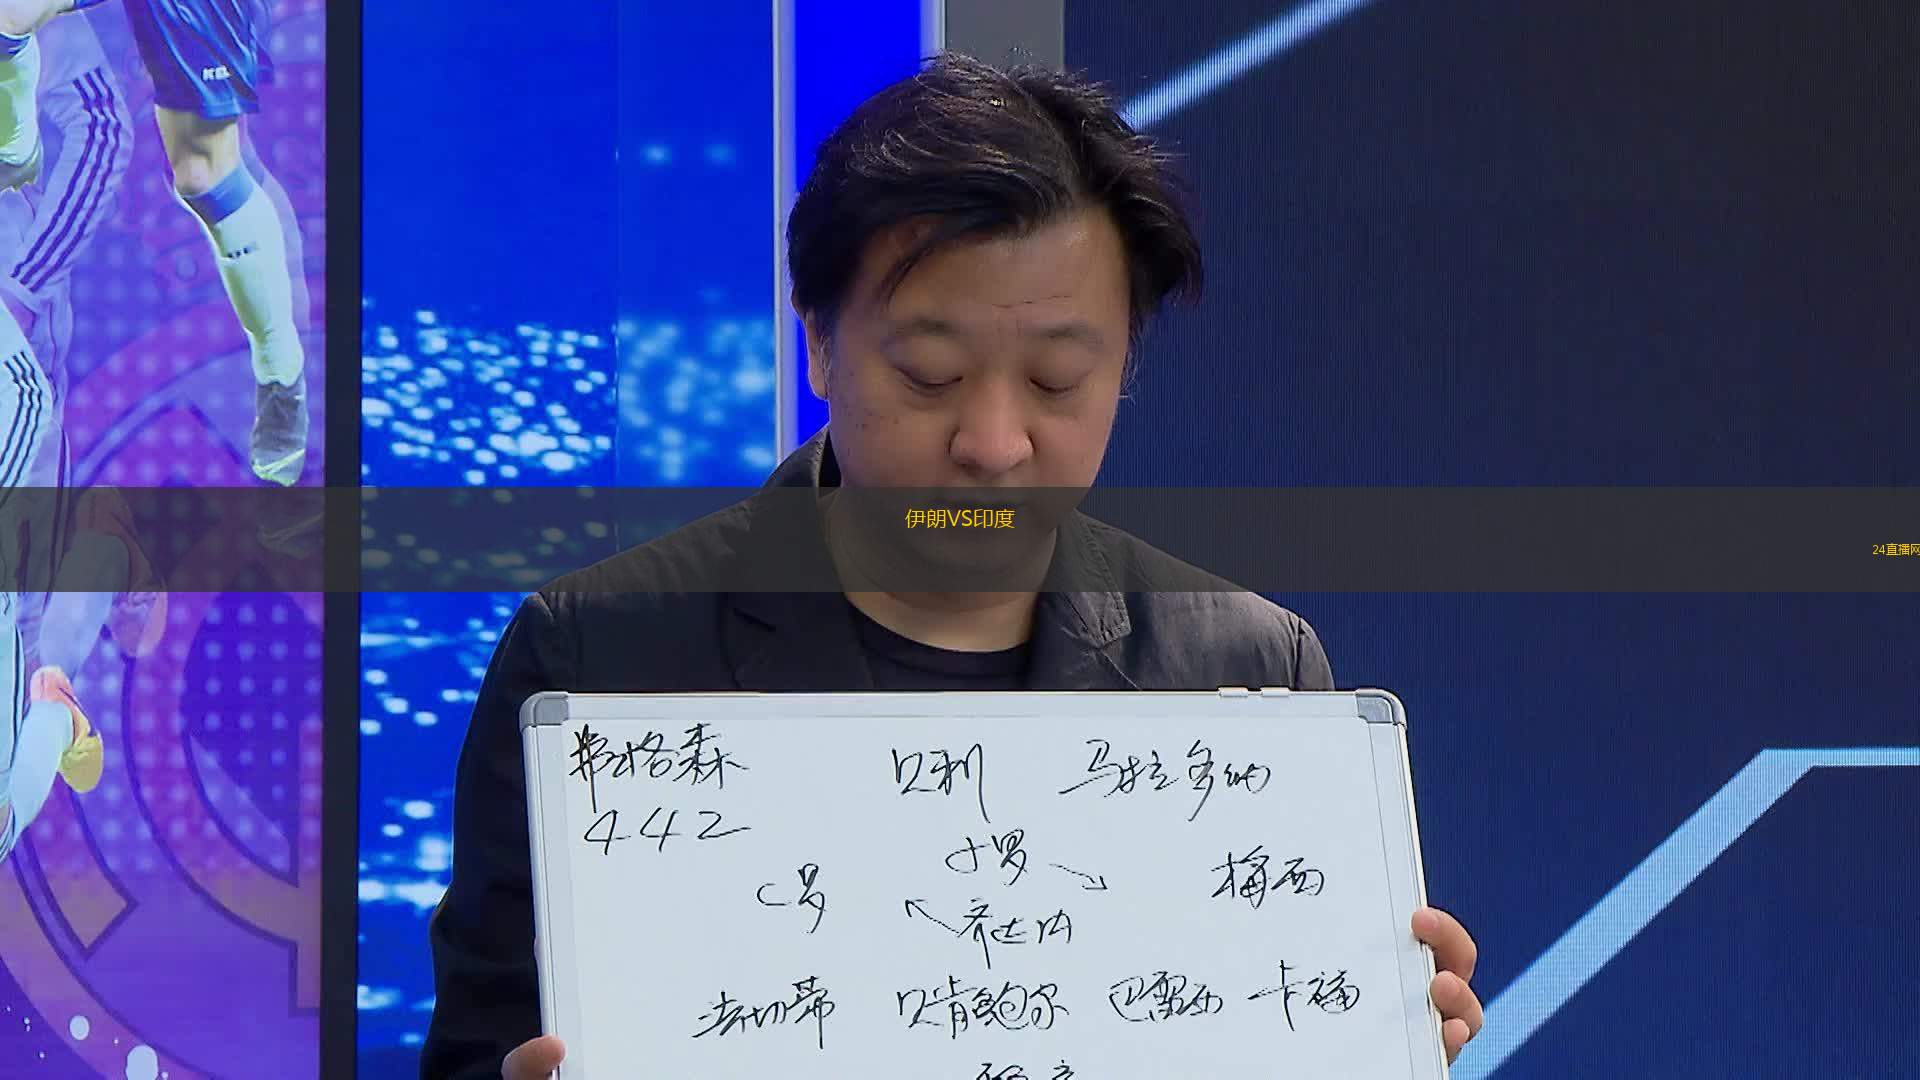 伊朗VS印度
24直播网
弗格森 贝利 马拉多纳
442
小罗
C罗 梅西
齐达内
法切蒂 贝肯鲍尔 巴雷西 卡福